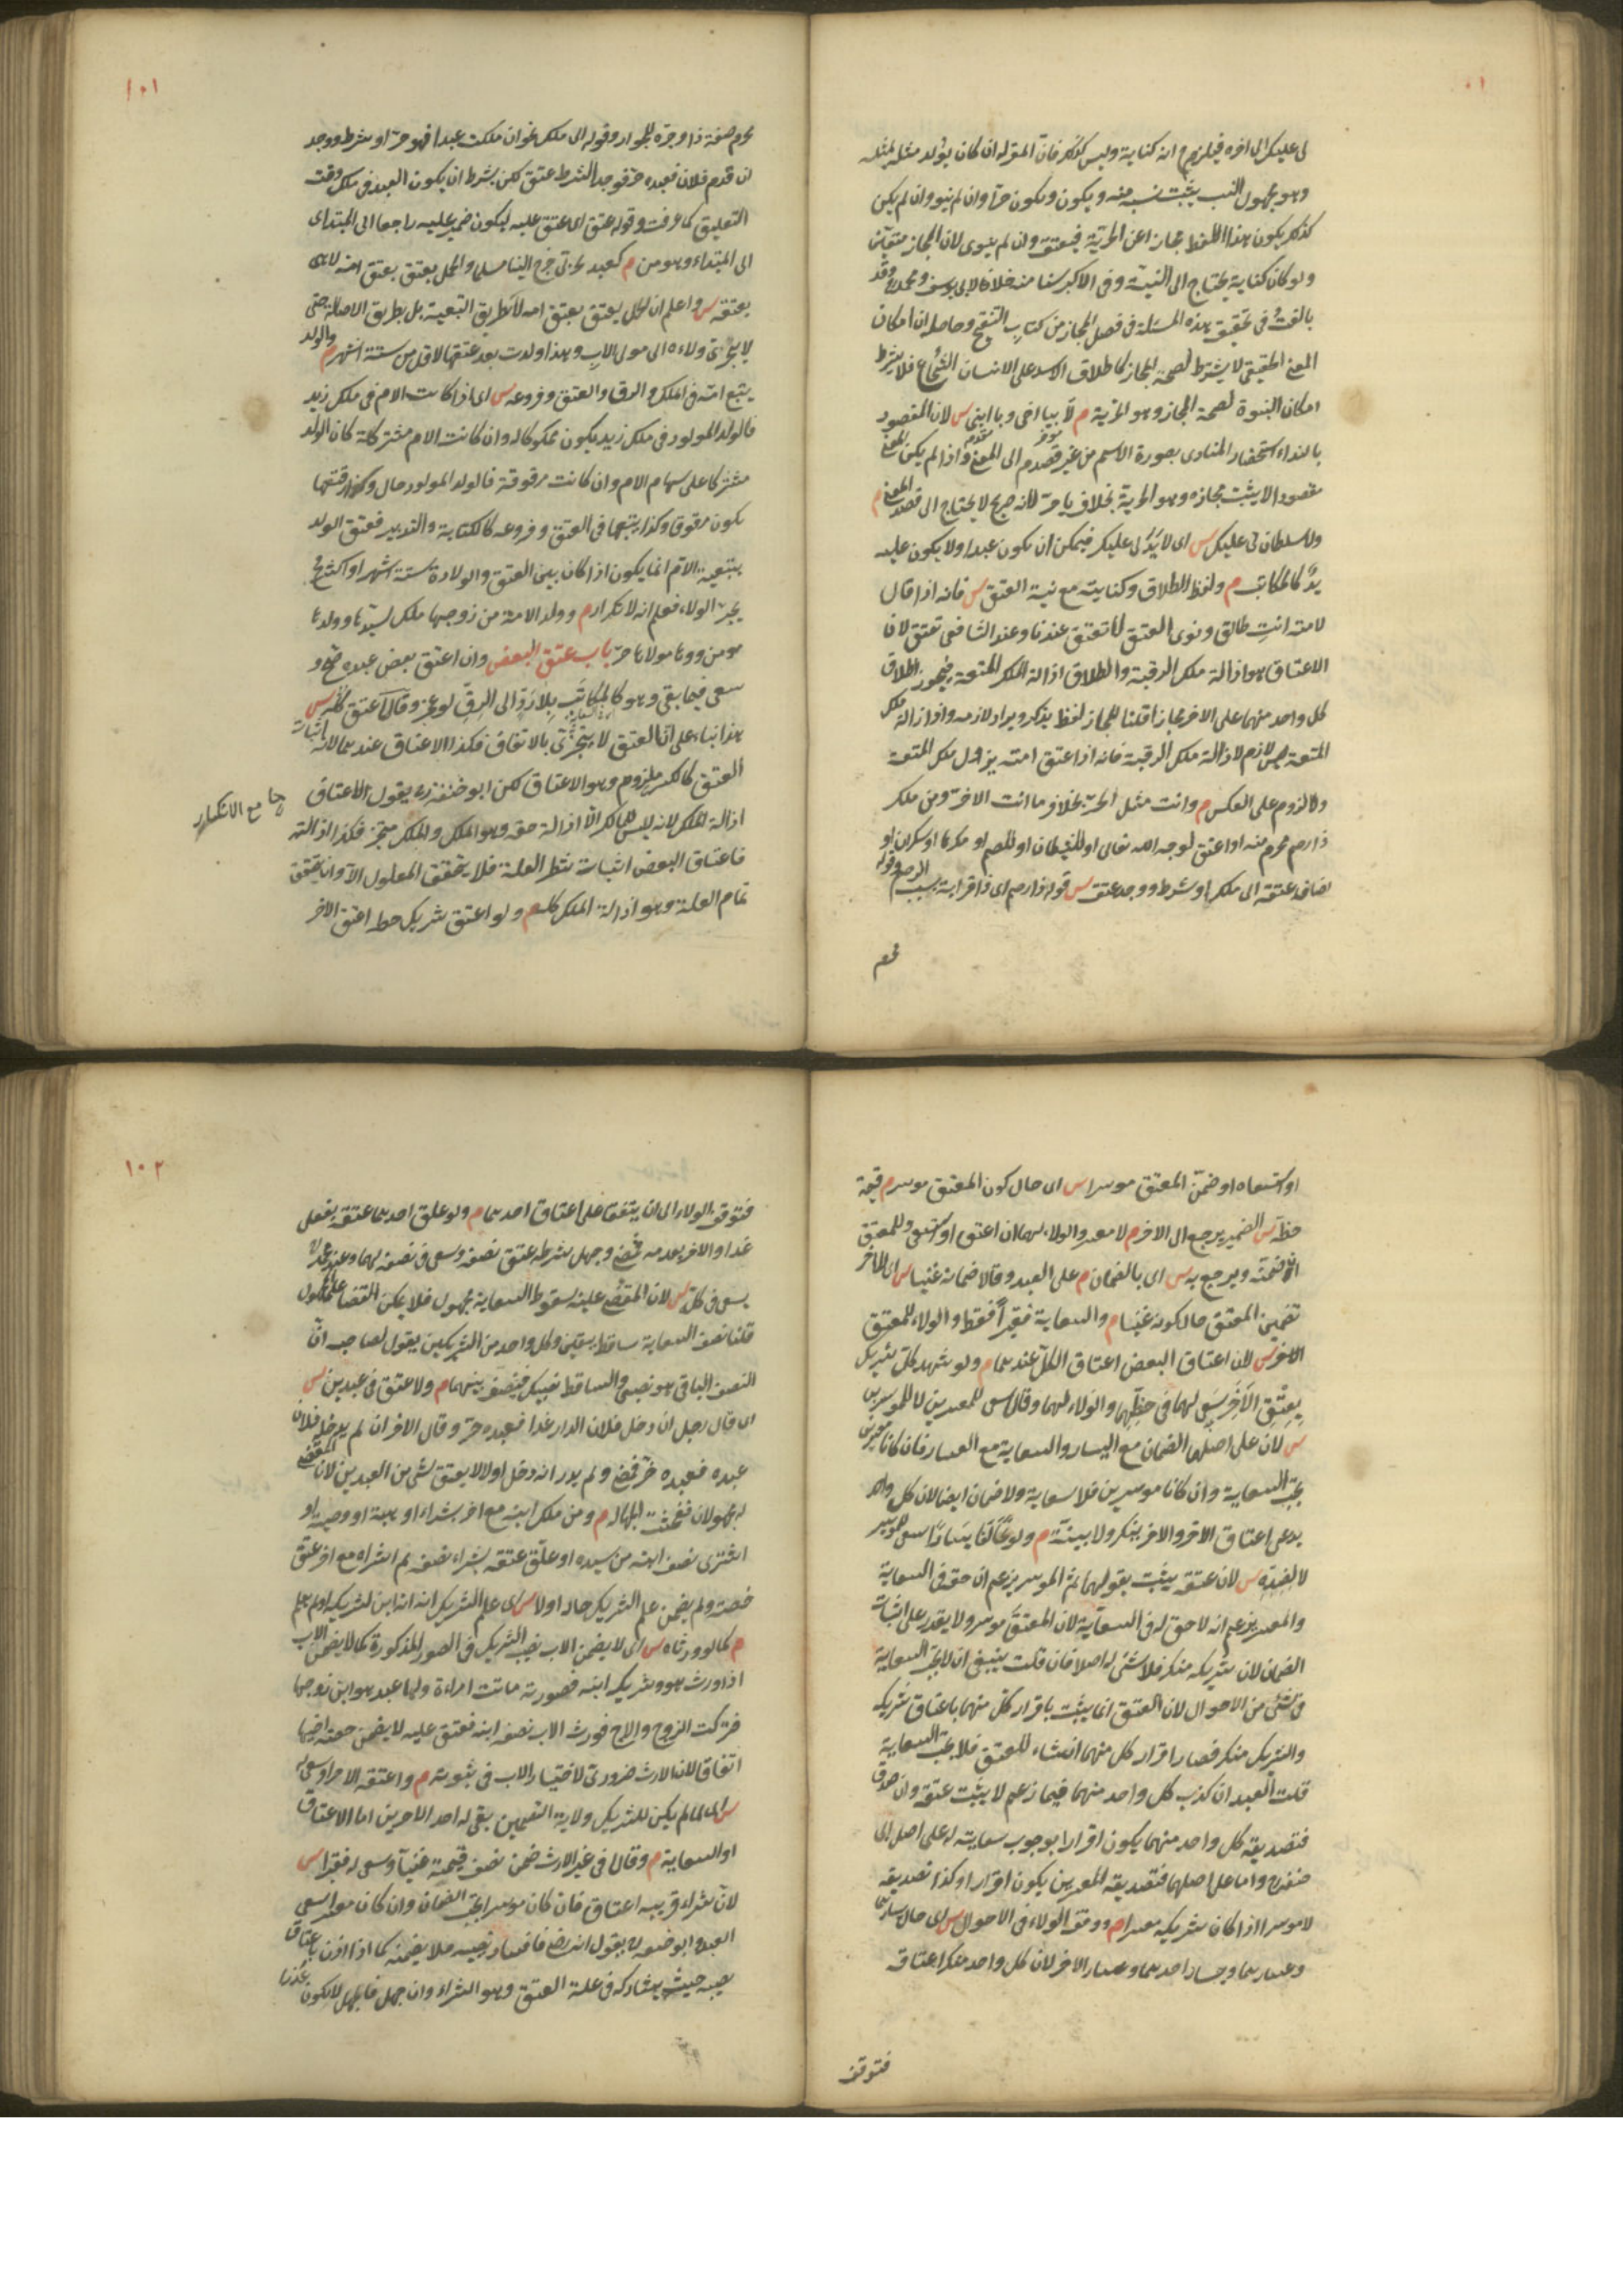 لى عليك الى اخره فيلزم انه كناية وليس كذلك فان المقر له ان كان يولد مثله لمثله
وهو مجهول النسب يثبت نسبه منه ويكون ويكون حرا وان لم ينو وان لم يكن
كذلك يكون هذا اللفظ مجازا عن الحرية فيعتق وان لم ينوى لان المجاز متعين
ولو كان كناية يحتاج الى النية وفى الاكبر سنا منه خلافا لابى يوسف ومحمد وقد
بالغت فى تحقيق هذه المسئلة فى فصل المجاز من كتاب التنقيح وحاصله ان امكان
المعنى الحقيقى لا يشترط لصحة المجاز كاطلاق الاسد على الانسان الشجاع فلا يشترط
امكان البنوة لصحة المجاز وهو الحرية م لا بيا اخى ويا ابنى س لان المقصود
بالنداء استحضار المنادى بصورة الاسم من غير قصدهم الى المعنى واذا لم يكن المعنى
مقصودا لا يثبت مجازه وهو الحرية بخلاف يا حر لانه صريح لا يحتاج الى قصد المعنى م
ولا سلطان لى عليك س اى لا يد لى عليك فيمكن ان يكون عبدا ولا يكون عليه
يد كالمكاتب م ولفظ الطلاق وكنايته مع نية العتق س فانه اذا قال
لامته انت طالق ونوى العتق لا تعتق عندنا وعند الشافعى تعتق لان
الاعتاق هو ازالة ملك الرقبة والطلاق ازالة ملك المتعة فيجوز اطلاق
كل واحد منهما على الاخر مجازا قلنا المجاز لفظ يذكر ويراد لازمه وازالة ملك
المتعة لازم لازالة ملك الرقبة فانه اذا اعتق امته يزول ملك المتعة
ولا لزوم على العكس م وانت مثل الحر بخلاف ما انت الا حر ومن ملك
ذا رحم محرم منه او اعتق لوجه الله تعالى او للشيطان او للصنم او مكرها او سكران او
اضاف عتقه الى ملك او شرط ووجد عتق س قوله ذا رحم اى ذا قرابة بسبب الرحم وقوله
محرم
١٠١
محرم صفة ذا وجره للجوار وقوله الى ملك نحو ان ملكت عبدا فهو حر او شرط ووجد
ان قدم فلان فعبده حر فوجد الشرط عتق لكن بشرط ان يكون العبد فى ملكه وقت
التعليق كما عرفت وقوله عتق اى عتق عليه ليكون ضمير عليه راجعا الى المبتداى
الى المبتداء وهو من م كعبد لحربى خرج الينا مسلما والحمل يعتق بعتق امه لا هى
بعتقه س واعلم ان الحمل يعتق بعتق امه لا بطريق التبعية بل بطريق الاصالة حتى
لا ينجر ولاءه الى مولى الاب وهذا اذا ولدت بعد عتقها لاقل من ستة اشهر م والولد
يتبع امه فى الملك والرق والعتق وفروعه س اى اذا كانت الام فى ملك زيد
فالولد المولود فى ملك زيد يكون مملوكا له وان كانت الام مشتركة كان الولد
مشتركا على سهام الام وان كانت مرقوقة فالولد المولود حال رقيتها
يكون مرقوقا وكذا يتبعها فى العتق وفروعه كالكتابة والتدبير فعتق الولد
بتبعية الام انما يكون اذا كان بين العتق والولادة ستة اشهر او اكثر
يجر الولاء فعلم انه لا تكرار م وولد الامة من زوجها ملك لسيدها وولدها
من مولاها حر باب عتق البعض وان اعتق بعض عبده صح و
سعى فيما بقى وهو كالمكاتب بلا رد الى الرق لو عجز وقالا عتق كله س
هذا بناء على ان العتق لا يتجزى بالاتفاق فكذا الاعتاق عندهما لانه اثبات
العتق كالكسر مع الانكسار وهو الاعتاق لكن ابو حنيفة رح يقول الاعتاق
مع الانكسار
ازالة الملك لانه ليس للمالك الا ازالة حقه وهو الملك والملك متجز فكذا ازالته
فاعتاق البعض اثبات شطر العلة فلا يتحقق المعلول الا وان يتحقق
تمام العلة وهو ازالة الملك كله م ولو اعتق شريك حظه اعتق الاخر
او استسعاه او ضمن المعتق موسرا س اى حال كون المعتق موسرا م قيمة
حظه س الضمير يرجع الى الاخر م لا معسرا والولاء لهما ان اعتق او استسعى وللمعتق
ان ضمنه ويرجع به س اى بالضمان م على العبد وقالا ضمانه غنيا س اى للاخر
تضمين المعتق حال كونه غنيا م والسعاية فقيرا فقط والولاء للمعتق
س لان اعتاق البعض اعتاق الكل عندهما م ولو شهد كل شريك
بعتق الاخر سعى لهما فى حظهما والولاء لهما وقالا سعى للمعسرين لا للموسرين
س لان على اصلهما الضمان مع اليسار والسعاية مع العسار فان كانا معسرين
تجب السعاية وان كانا موسرين فلا سعاية ولا ضمان ايضا لان كل واحد
يدعى اعتاق الاخر والاخر ينكر ولا بينة م ولو تخالفا يسارا سعى للموسر
لا لضده س لان عتقه يثبت بقولهما ثم الموسر يزعم ان حقه فى السعاية
والمعسر يزعم انه لا حق له فى السعاية لان المعتق موسر ولا يقدر على اثبات
الضمان لان شريكه منكر فلا شئ له اصلا فان قلت ينبغى ان لا تجب السعاية
فى شئ من الاحوال لان العتق انما يثبت باقرار كل منهما باعتاق شريكه
والشريك منكر فصار اقرار كل منهما انشاء للعتق فلا تجب السعاية
قلت العبد ان كذب كل واحد منهما فيما زعم لا يثبت عتقه وان صدق
فتصديقه كل واحد منهما يكون اقرارا بوجوب سعايته له على اصل ابى
حنيفة رح واما على اصلهما فتصديقه المعسرين يكون اقرارا وكذا تصديقه
لا موسرا اذا كان شريكه معسرا م ووقف الولاء فى الاحوال س اى حال يسارهما
وعسارهما ويسار احدهما وعسار الاخر لان كل واحد منكر اعتاقه
فتوقف
١٠٢
فتوقف الولاء الى ان يتفقا على اعتاق احدهما م ولو علق احدهما عتقه بفعل
غدا والاخر بعدمه فمضى وجهل شرطه عتق نصفه وسعى فى نصفه لهما وعند محمد رح
يسعى فى كله س لان المقضى عليه بسقوط السعاية مجهول فلا يمكن القضا على المجهول
قلنا نصف السعاية ساقط بيقين وكل واحد من الشريكين يقول لصاحبه ان
النصف الباقى هو نصيبى والساقط نصيبك فينصف بينهما م ولا عتق فى عبدين س
اى قال رجل ان دخل فلان الدار غدا فعبده حر وقال الاخر ان لم يدخل فلان
عبده فعبده حر فمضى ولم يدر انه دخل او لا لا يعتق شئ من العبدين لان المقضى
له مجهولان ففحشت الجهالة م ومن ملك ابنه مع اخر بشراء او هبة او وصية او
اشترى نصف ابنه من سيده او علق عتقه بشراء نصفه ثم اشتراه مع اخر عتق
حصته ولم يضمن علم الشريك حاله او لا س اى علم الشريك انه ابن لشريكه او لم يعلم
م كما لو ورثاه س اى لا يضمن الاب نصيب الشريك فى الصور المذكورة كما لا يضمن الاب
اذا ورث هو وشريكه ابنه فصورته ماتت امراءة ولها عبد هو ابن زوجها
فتركت الزوج والاخ فورث الاب نصف ابنه فعتق عليه لا يضمن حصة اخيها
اتفاقا لان الارث ضرورى لا اختيار للاب فى ثبوته م واعتقه الاخر او سعى له
س اى لما لم يكن للشريك ولاية التضمين بقى له احد الامرين اما الاعتاق
او السعاية م وقالا فى غير الارث ضمن نصف قيمته غنيا وسعى له فقيرا س
لان شراء قريبه اعتاق فان كان موسرا يجب الضمان وان كان معسرا سعى
العبد ابو حنيفة رح يقول انه رضى فافساد نصيبه فلا يضمنه كما اذا اذن باعتاق
نصيبه حيث يشاركه فى علة العتق وهو الشراء وان جهل فالجهل لا يكون عذرا